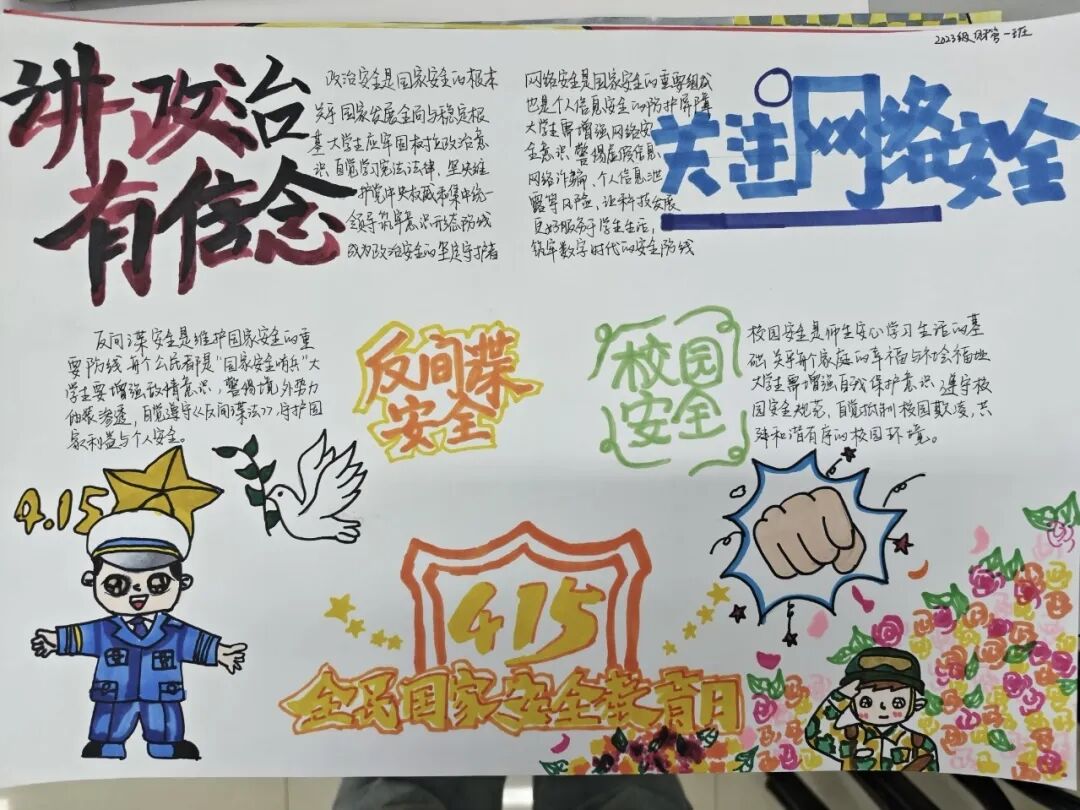 2023级财管一班
讲政治
有信念
政治安全是国家安全的根本
关乎国家发展全局与稳定根
基大学生应牢固树立政治意
识自觉学习宪法法律,坚决维
护党中央权威和集中统一
领导筑牢意识形态防线
成为政治安全的坚定守护者
网络安全是国家安全的重要组成
也是个人信息安全的防护屏障
大学生需增强网络安
全意识警惕虚假信息
网络诈骗、个人信息泄
露等风险,让科技发展
更好服务于学生生活,
筑牢数字时代的安全防线
关注网络安全
反间谍安全是维护国家安全的重
要防线每个公民都是"国家安全哨兵"大
学生要增强敌情意识,警惕境外势力
的渗透,自觉遵守《反间谍法》,守护国
家利益与个人安全。
反间谍
安全
校园
安全
校园安全是师生安心学习生活的基
础关乎每个家庭的幸福与社会
大学生需增强自我保护意识遵守校
园安全规范,自觉抵制校园欺凌,共
建和谐有序的校园环境。
4.15
415
全民国家安全教育日